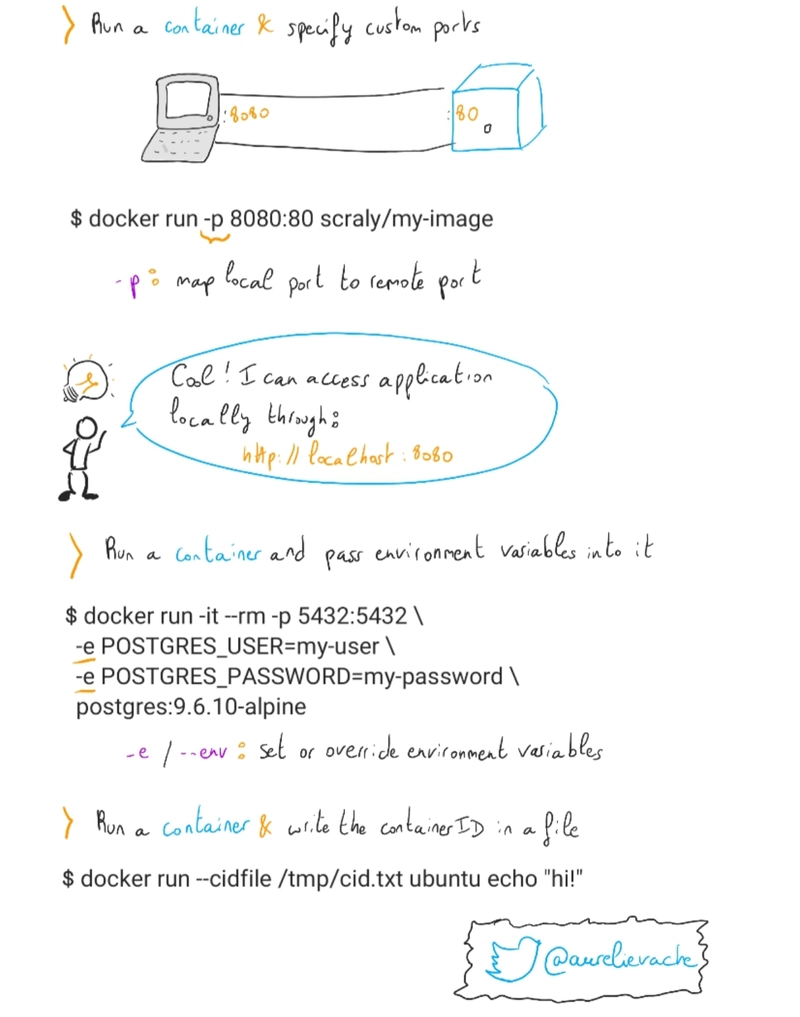 > Run a container & specify custom ports
:8080 :80
$ docker run -p 8080:80 scraly/my-image
-p : map local port to remote port
Cool! I can access application
locally through:
http://localhost:8080
> Run a container and pass environment variables into it
$ docker run -it --rm -p 5432:5432 \
-e POSTGRES_USER=my-user \
-e POSTGRES_PASSWORD=my-password \
postgres:9.6.10-alpine
-e / --env : set or override environment variables
> Run a container & write the container ID in a file
$ docker run --cidfile /tmp/cid.txt ubuntu echo "hi!"
@aurelievache